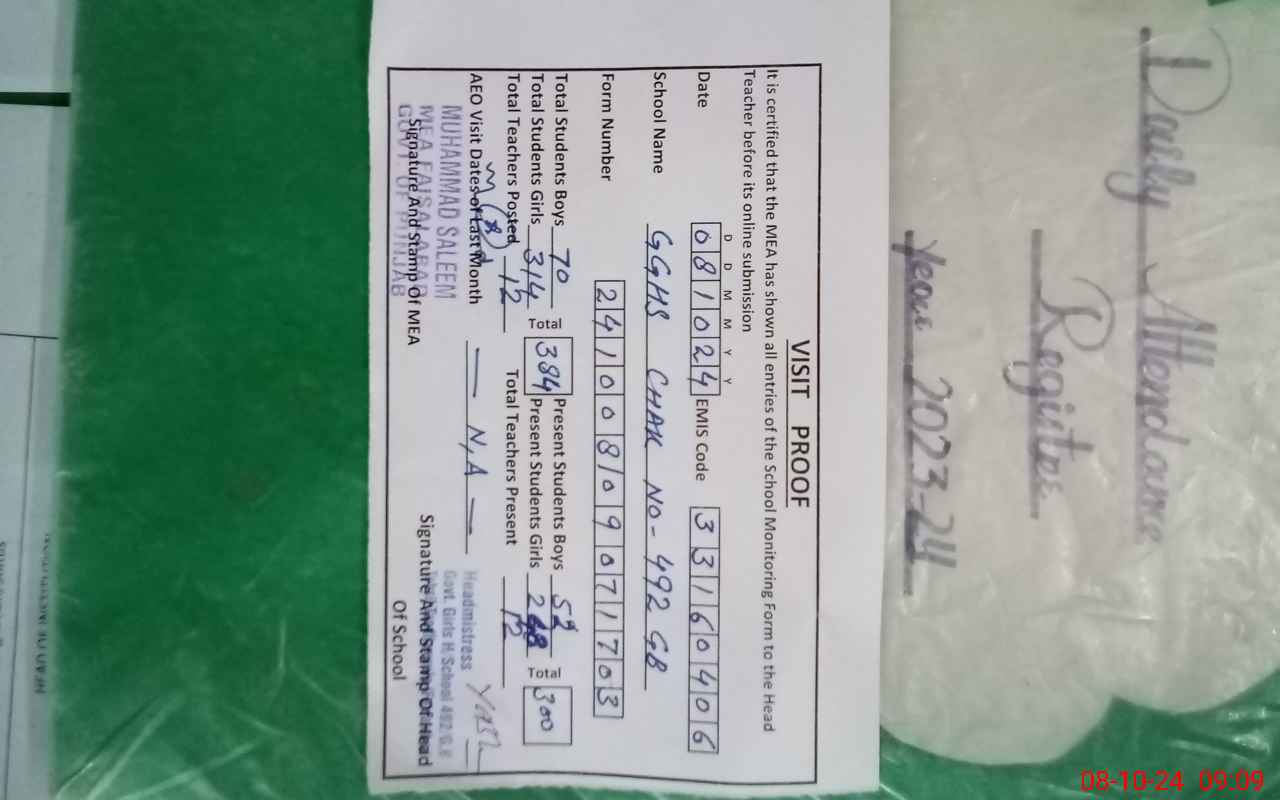 VISIT PROOF
It is certified that the MEA has shown all entries of the School Monitoring Form to the Head
Teacher before its online submission
D D M M Y Y
Date 081024 EMIS Code 33160406
School Name GGHS CHAK NO- 492 GB
Form Number 24100810907 1703
Total Students Boys 70 Total 384 Present Students Boys 52 Total 300
Total Students Girls 314 Present Students Girls 248
Total Teachers Posted 12 Total Teachers Present 12
AEO Visit Dates of Last Month — N,A —
MUHAMMAD SALEEM
MEA FAISALABAD
GOVT OF PUNJAB
Signature And Stamp Of MEA
Headmistress
Govt. Girls H/School 492/G.B
Signature And Stamp Of Head
Of School
Daily Attendance
Register
Year 2023-24
08-10-24 09:09